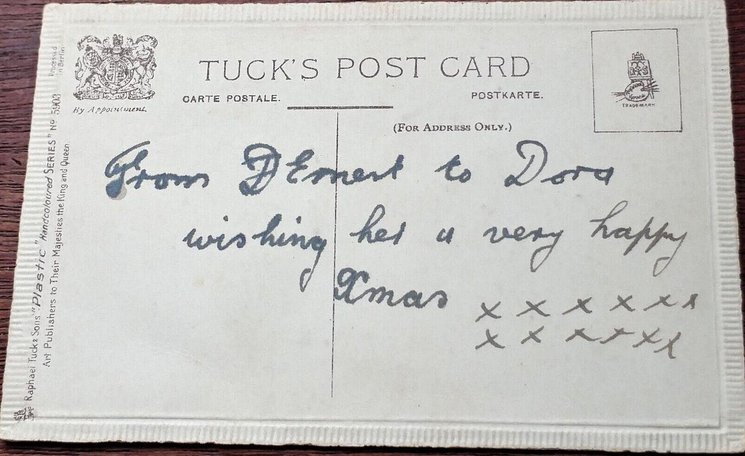 Processed
in Berlin
By Appointment.
TUCK'S POST CARD
CARTE POSTALE.
POSTKARTE.
TRADE MARK
(FOR ADDRESS ONLY.)
Raphael Tuck & Sons "Plastic" Handcoloured SERIES" No 5903
Art Publishers to Their Majesties the King and Queen
From Ernest to Dora
wishing her a very happy
Xmas x x x x x x
x x x x x x